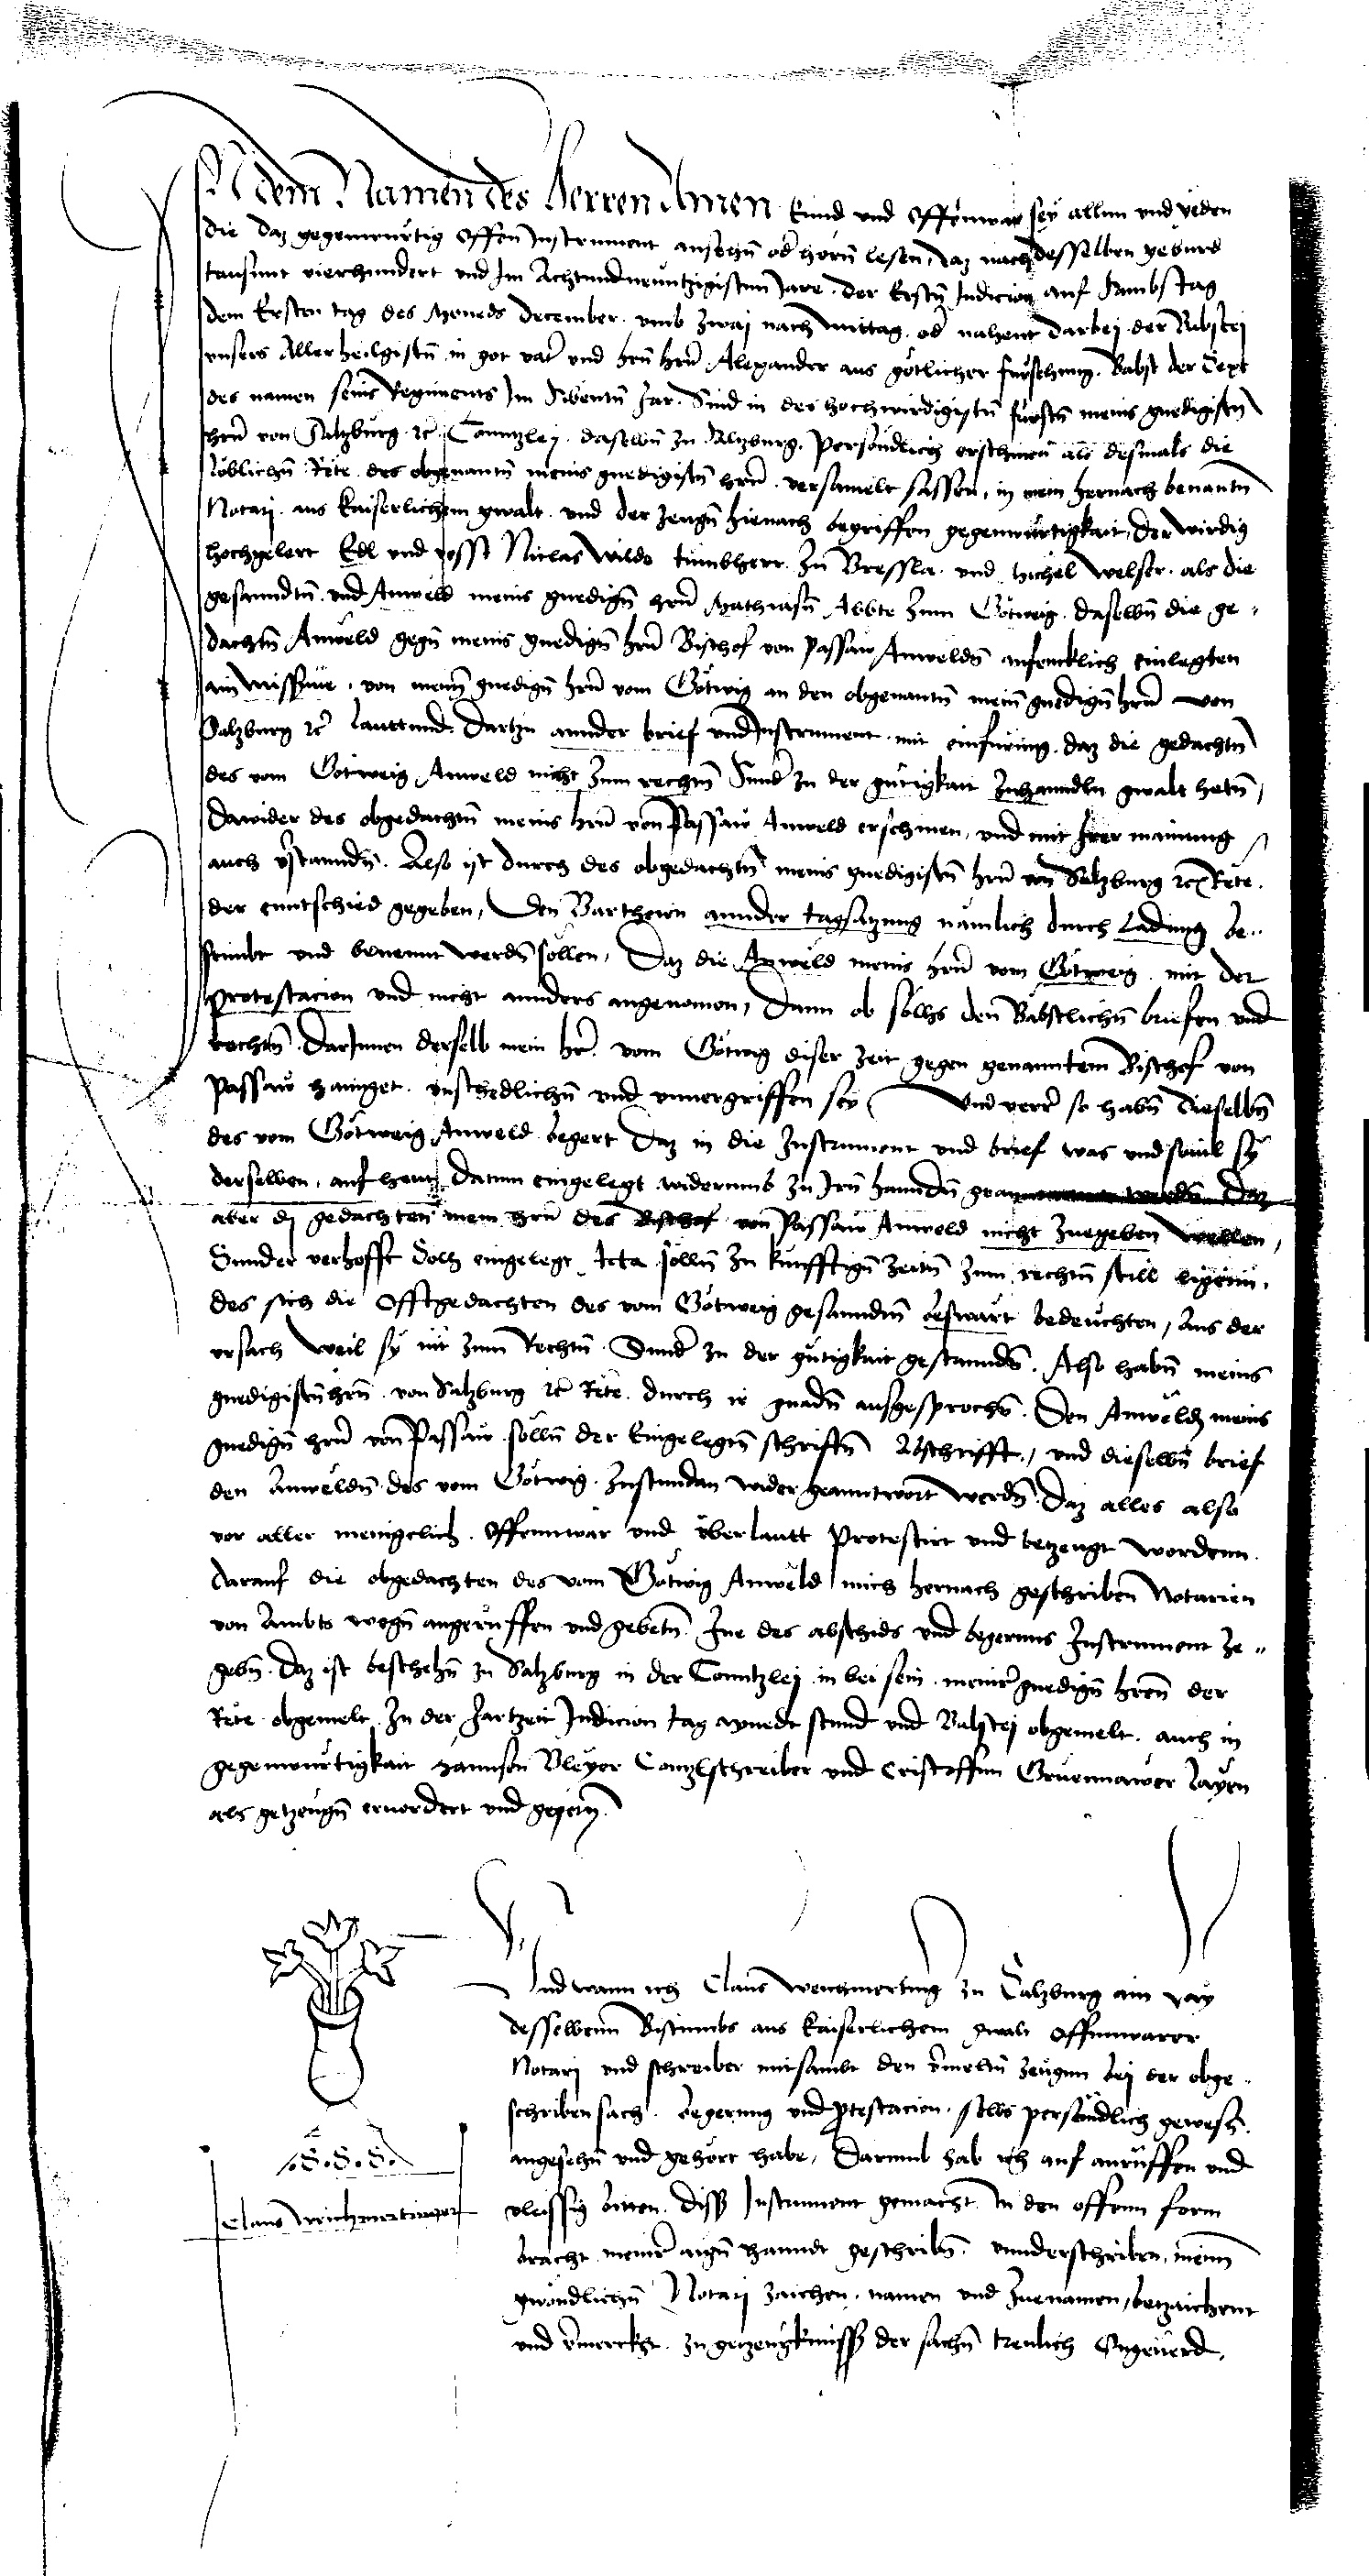 In dem Namen des Herren Amen kund und offenwar sey allen und yeden
die daz gegenwurtig offen Instrument ansehn̄ od̄ horn̄ lesen, daz nach desselben geburd
tausunt vierhundert und Im Achtundneuntzigisten Jare. der Ersten̄ Indicion auf Sambstag
dem Ersten tag des Moneds December. umb zwaj nach mittag. od̄ nahent darbej. der Babstej
unsers Allerheilgistn̄ in got vat̄ und hrn̄ hrn̄ Alexander aus gotlicher fursehung. Babst der Sext
des namen seins Regiments Im Sibentn̄ Jar. Sind in des hochwirdigistn̄ furstn̄ meins gnedigistn̄
hrn̄ von Saltzburg ꝛc̄ Canntzlej. daselbn̄ zu Saltzburg. personndlich erschinen als desmals die
loblichn̄ Rete. des obgenantn̄ meins gnedigistn̄ hrn̄. versamelt sassen, in mein hernach benantn̄
Notarj. aus kaiserlichem gwalt. und der zeugn̄ hienach begriffen gegenwurtigkait, der wirdig
hochgelert Edl und vesst Niclas Wildo tumbherr. zu Bressla. und Michel Welser. als die
gesanndtn̄. und Anweld meins gnedign̄ hrn̄ Mathiasn̄ Abbte zum Götweig. daselbn̄ die ge-
dachtn̄ Anweld gegn̄ meins gnedign̄ hrn̄ Bischof von Passaw Anweldn̄ anfencklich einlegten
ain missyue. von mein̄ gnedign̄ hrn̄ vom Götwig an den obgenantn̄ mein̄ gnedign̄ hrn̄ von
Salzburg ꝛc̄ lauttund. Dartzu annder brief und Instrument. mit einfurung. daz die gedachtn̄
des vom Götweig Anweld nicht zum rechtn̄ Sund̄ zu der gutigkait zuhanndln gwalt hetn̄,
Dawider des obgedachtn̄ meins hrn̄ von Passaw Anweld erschinen, und mit Irer mainung
auch v̄stanndn̄. Also ist durch des obgedachtn̄ meins gnedigistn̄ hrn̄ von Salzburg ꝛc̄ Rete.
der enntschid gegeben, Den Partheien annder tagsatzung namlich durch Ladung be-
stimbt und benennt werdn̄ sollen, Daz die Anweld meins hrn̄ vom Götweig. mit der
protestacion und nicht annders angenomen, Dann ob solhs den Babstlichn̄ briefen und
rechtn̄. Darinnen derselb mein hr̄. vom Götwig diser zeit gegen genanntem Bischof von
Passaw hannget. unschedlichn̄ und unuergriffen sey Und verr̄ so habn̄ dieselbn̄
des vom Götweig Anweld begert Daz in die Instrument und brief was und souil sy
derselben, auf heut Datum eingelegt widerumb zu Irn̄ hanndn̄
aber di gedachten mein hrn̄ des Bischof von Passaw Anweld nicht zuegeben wellen,
Sunder verhofft Solh eingelegt Acta sollen̄ zu kunfftign̄ zeitn̄ zum rechtn̄ still ligenn,
des sich die offtgedachten des vom Götweig gesanndtn̄ beswart bedeuchten, Aus der
ursach weil sy nit zum Rechtn̄. Sund̄ zu der gutigkait gestanndn̄. Also habn̄ meins
gnedigistn̄ hrn̄. von Salzburg ꝛc̄ Rete. durch ir gnadn̄ ausgesprochn̄. Den Anweldn̄ meins
gnedign̄ hrn̄ von Passaw. sollen̄ der Eingelegtn̄ schriftn̄ Abschrifft, und dieselbn̄ brief
den Anweldn̄ des vom Götwig. zustundan wider geanntwort werdn̄. Daz alles also
vor aller menigclich. offennwar und uberlautt Protestirt und betzeugt wordenn.
Darauf die obgedachten des vom Götwig Anweld mich hernach geschriben Notarien
von Ambts wegn̄ angerüffen und gebetn̄. Ine des abschids und begerens Instrument ze-
gebn̄. Daz ist beschehn̄ zu Salzburg in der Canntzlej in bei sein. meiner gnedign̄ hrn̄ der
Rete obgemelt. In der Jartzeit Indicion tag monedt stund und Babstej obgemelt. auch in
gegenwurtigkait Hannsen Pleyer Canzlschreiber und Cristoffen Gruennawer Layen
als getzeugn̄ eruordert und gepetn̄.
Und wann ich Clans Weichmertinger zu Salzburg ain Lay
desselbenn Bistumbs aus kaiserlichem gwalt offennwarer
Notarj und schreiber mitsambt den v̄melten̄ zeugen bej der obge-
schriben sach. begerung und protestacion. selbs personndlich gewesn̄.
angesehn̄ und gehört habe, Darumb hab ich auf anrüffen und
vleissig bitten. Diss Instrument gemacht In den offenn form
bracht meiner aign̄ hanndt geschribn̄. unnderschriben, meinn̄
gwöndlichn̄ Notarj zaichen. namen und zuenamen, betzaichent
und v̄merckt. zu getzeugknuss der sachn̄ treulich Ongeuerd.
.S.S.S.
Clans Weichmertinger